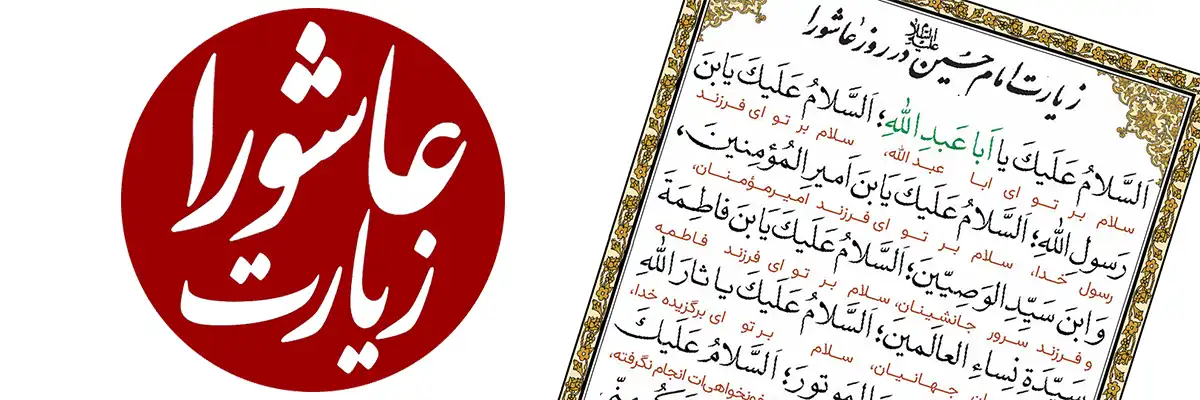 زیارت
عاشورا
زیارت امام حسین علیه‌السلام در روز عاشورا
اَلسَّلامُ عَلَیكَ یا اَبا عَبدِ اللّٰهِ؛ اَلسَّلامُ عَلَیكَ یَابنَ
سلام بر تو ای ابا عبدالله، سلام بر تو ای فرزند
رَسولِ اللّٰهِ؛ اَلسَّلامُ عَلَیكَ یَابنَ اَمیرِ المُؤمِنینَ،
رسول خدا، سلام بر تو ای فرزند امیرمؤمنان،
وَ ابنَ سَیِّدِ الوَصِیّینَ؛ اَلسَّلامُ عَلَیكَ یَابنَ فاطِمَةَ
و فرزند سرور جانشینان، سلام بر تو ای فرزند فاطمه
سَیِّدَةِ نِساءِ العالَمینَ؛ اَلسَّلامُ عَلَیكَ یا ثارَ اللّٰهِ
جهانیان، سلام بر تو ای برگزیده خدا،
المَوتورَ؛ اَلسَّلامُ عَلَیكَ
انجام نگرفته،